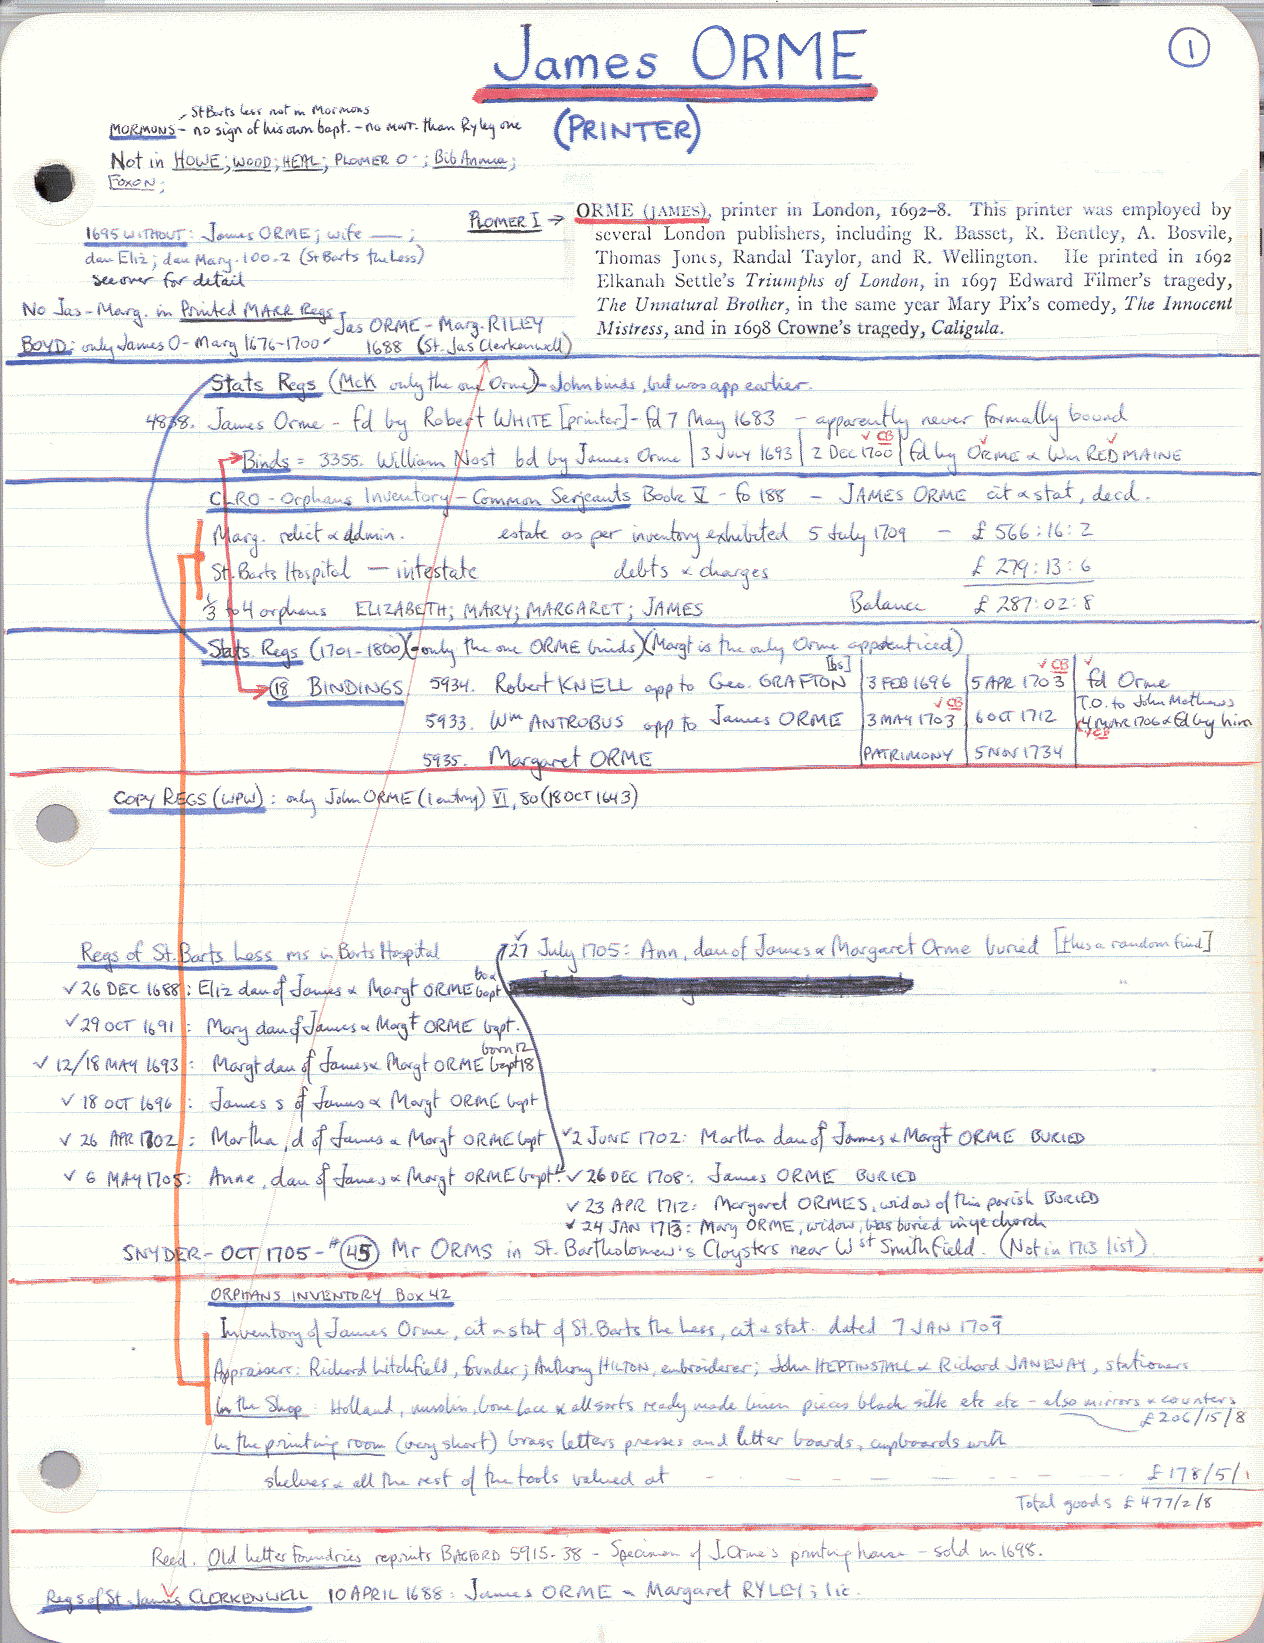 James ORME
1
(PRINTER)
St Barts Less not in Mormons
MORMONS - no sign of his own bapt. - no marr. than Ryley one
Not in HOWE; WOOD; HEAL; PLOMER O ; Bib Annua;
FOXON;
PLOMER I →
ORME (JAMES), printer in London, 1692–8. This printer was employed by
several London publishers, including R. Basset, R. Bentley, A. Bosvile,
Thomas Jones, Randal Taylor, and R. Wellington. He printed in 1692
Elkanah Settle's Triumphs of London, in 1697 Edward Filmer's tragedy,
The Unnatural Brother, in the same year Mary Pix's comedy, The Innocent
Mistress, and in 1698 Crowne's tragedy, Caligula.
1695 WITHOUT: James ORME; wife — ;
dau Eliz; dau Mary. 100.2 (St Barts the Less)
see over for detail
No Jas - Marg. in Printed MARR Regs
Jas ORME - Marg. RILEY
BOYD: only James O - Marg 1676-1700
1688 (St. Jas Clerkenwell)
Stats Regs (McK only the one Orme) - John binds, but was app earlier.
4838. James Orme - fd by Robert WHITE [printer] - fd 7 May 1683 - apparently never formally bound
Binds = 3355. William Nost bd by James Orme | 3 July 1693 | 2 DEC 1700 | fd by ORME & Wm REDMAINE
✓ CB ✓ ✓
CLRO - Orphans Inventory - Common Serjeants Book V - fo 188 - JAMES ORME cit & stat, decd.
Marg. relict & admin. estate as per inventory exhibited 5 July 1709 - £ 566:16:2
St. Barts Hospital — intestate debts & charges £ 279:13:6
⅓ to 4 orphans ELIZABETH; MARY; MARGARET; JAMES Balance £ 287:02:8
Stats. Regs (1701-1800) (-only the one ORME binds) (Margt is the only Orme apprenticed)
[bs] ✓ CB ✓
18 BINDINGS 5934. Robert KNELL app to Geo. GRAFTON | 3 FEB 1696 | 5 APR 1703 | fd Orme
✓ CB
5933. Wm ANTROBUS app to James ORME | 3 MAY 1703 | 6 OCT 1712 | T.O. to John Mathews
4 MAR 1706 & fd by him
CB
5935. Margaret ORME | PATRIMONY | 5 NOV 1734
COPY REGS (WPW): only John ORME (1 entry) VI, 50 (18 OCT 1643)
Regs of St. Barts Less ms in Barts Hospital
✓ 27 July 1705: Ann, dau of James & Margaret Orme buried [this a random find]
✓ 26 DEC 1688: Eliz dau of James & Margt ORME bo & bapt
✓ 29 OCT 1691: Mary dau of James & Margt ORME bapt.
✓ 12/18 MAY 1693: Margt dau of James & Margt ORME born 12 bapt 18
✓ 18 OCT 1696: James s of James & Margt ORME bapt
✓ 26 APR 1702: Martha, d of James & Margt ORME bapt
✓ 2 JUNE 1702: Martha dau of James & Margt ORME BURIED
✓ 6 MAY 1705: Anne, dau of James & Margt ORME bapt.
✓ 26 DEC 1708: James ORME BURIED
✓ 23 APR 1712: Margaret ORMES, widow of this parish BURIED
✓ 24 JAN 1713: Mary ORME, widow, was buried in ye church
SNYDER - OCT 1705 - # 45 Mr ORMS in St. Bartholomew's Cloysters near Wst Smithfield. (Not in 1713 list)
ORPHANS INVENTORY Box 42
Inventory of James Orme, cit & stat of St. Barts the Less, cit & stat. dated 7 JAN 1709
Appraisers: Richard Litchfield, founder; Anthony HILTON, embroiderer; John HEPTINSTALL & Richard JANEWAY, stationers
In the Shop: Holland, muslin, bone lace & all sorts ready made linen pieces black silk etc etc - also mirrors & counters
£206/15/8
In the printing room (very short) brass letters presses and letter boards, cupboards with
shelves & all the rest of the tools valued at - - - - - - £178/5/1
Total goods £477/2/8
Reed. Old Letter Foundries reprints BAGFORD 5915.38 - Specimen of J. Orme's printing house - sold in 1698.
Regs of St. James CLERKENWELL 10 APRIL 1688: James ORME & Margaret RYLEY; lic.